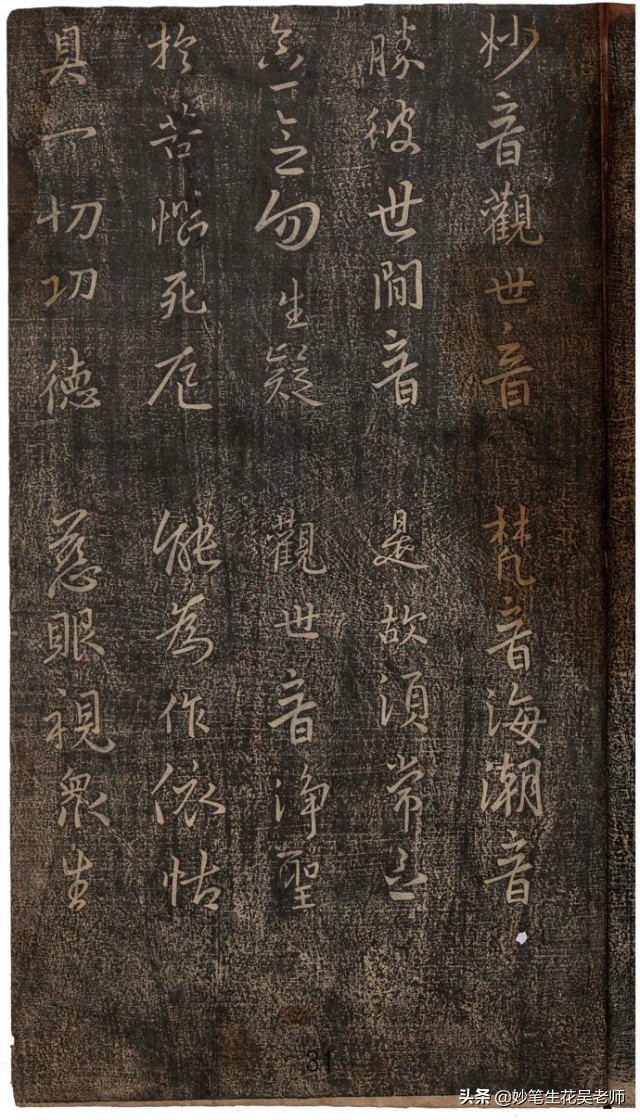 妙音觀世音　梵音海潮音
勝彼世間音　是故須常念
念念勿生疑　觀世音淨聖
於苦惱死厄　能為作依怙
具一切功德　慈眼視眾生
31
头条 @妙笔生花吴老师